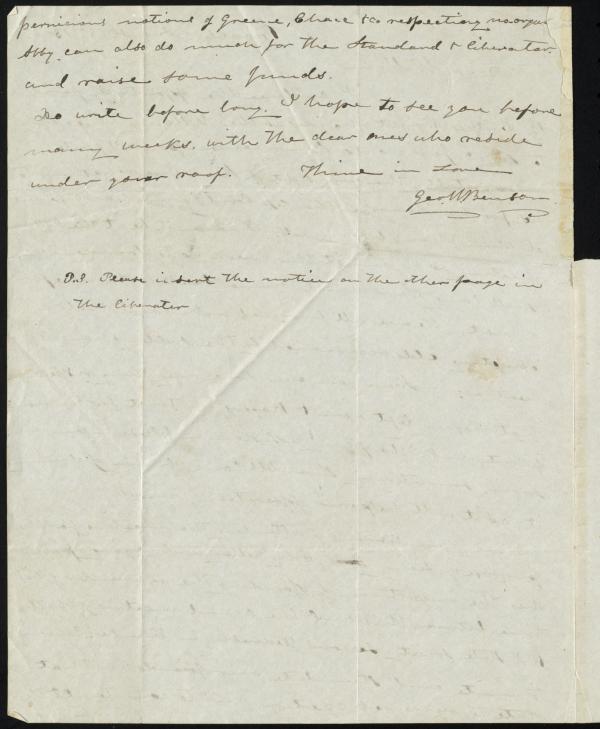 pernicious notions of Greene, Chace & Co respecting no organ
Abby can also do much for the Standard & Liberator.
and raise some funds.
Do write before long. I hope to see you before
many weeks, with the dear ones who reside
under your roof. Thine in Love
Geo. W Benson.
P.S. Please insert the notice on the other page in
the Liberator